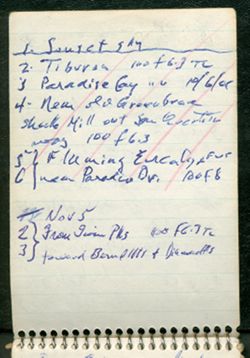 1. Sunset sky
2. Tiburon 100 f 6.3 TC
3 Paradise Cay " "
4 - Near old Greenbrae
shack Mill out San Quentin
way 100 f 6.3
5 } Flaming Eucalyptus
6 near Paradise Dr. 100 f 8
Nov 5
2 } From Twin Pks 100 f 6.3 TC
3 } toward Bernal Hts + Diamond Hts